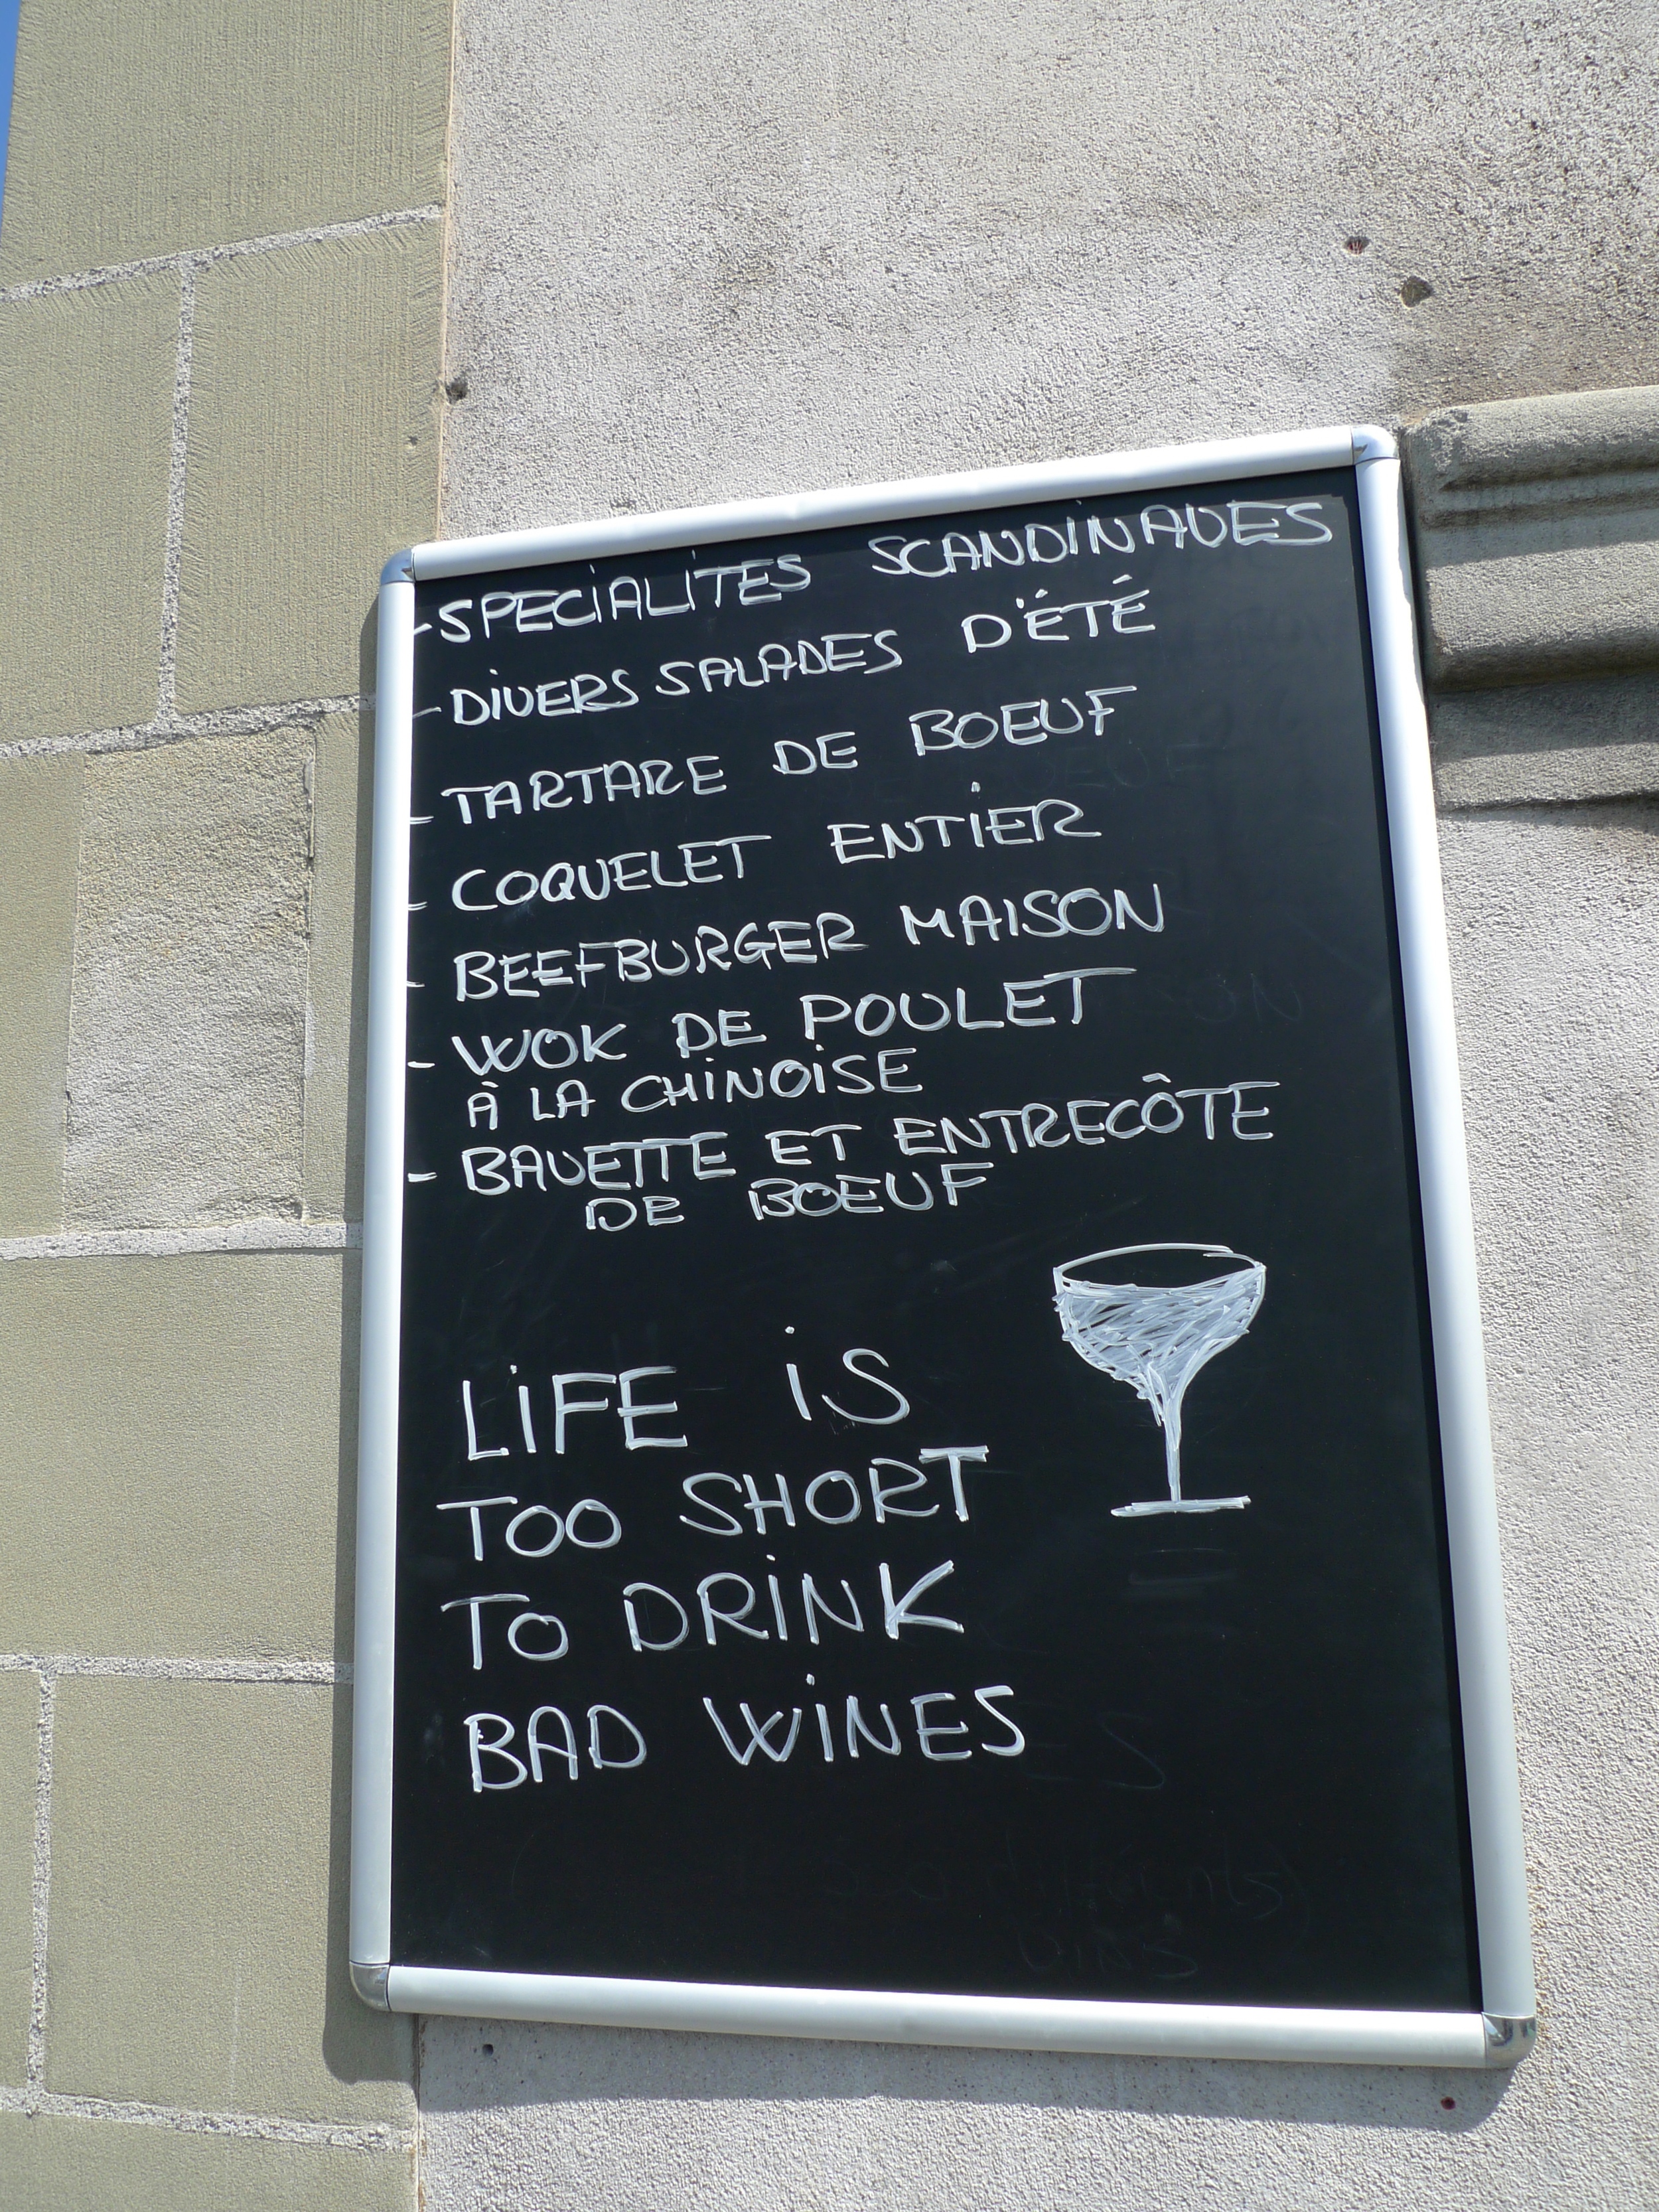 - SPECIALITES SCANDINAVES
- DIVERS SALADES D'ÉTÉ
- TARTARE DE BOEUF
- COQUELET ENTIER
- BEEFBURGER MAISON
- WOK DE POULET
À LA CHINOISE
- BAVETTE ET ENTRECÔTE
DE BOEUF
LIFE IS
TOO SHORT
TO DRINK
BAD WINES